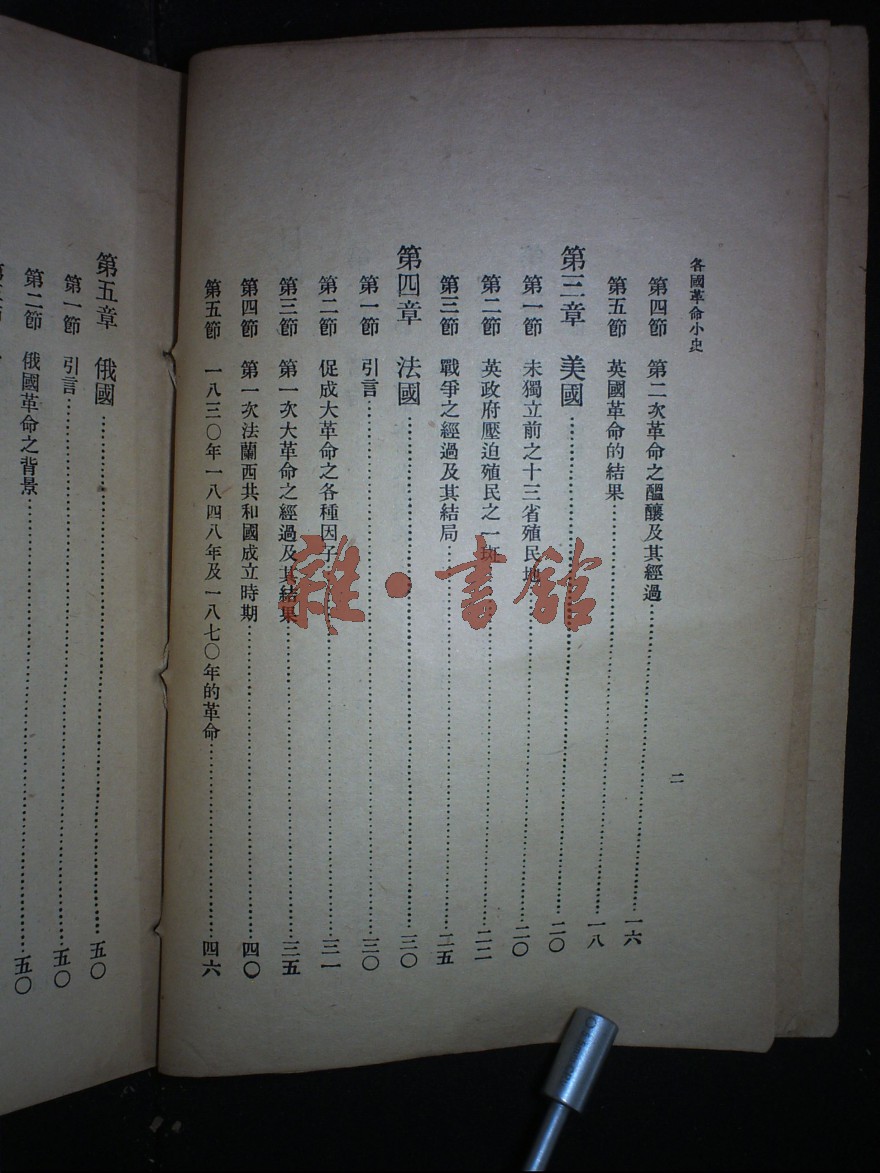 各國革命小史
二
第四節 第二次革命之醞釀及其經過……一六
第五節 英國革命的結果……一八
第三章 美國……二〇
第一節 未獨立前之十三省殖民地……二〇
第二節 英政府壓迫殖民之一斑……二二
第三節 戰爭之經過及其結局……二五
第四章 法國……三〇
第一節 引言……三〇
第二節 促成大革命之各種因子……三一
第三節 第一次大革命之經過及其結果……三五
第四節 第一次法蘭西共和國成立時期……四〇
第五節 一八三〇年一八四八年及一八七〇年的革命……四六
第五章 俄國……五〇
第一節 引言……五〇
第二節 俄國革命之背景……五〇
雜·書館